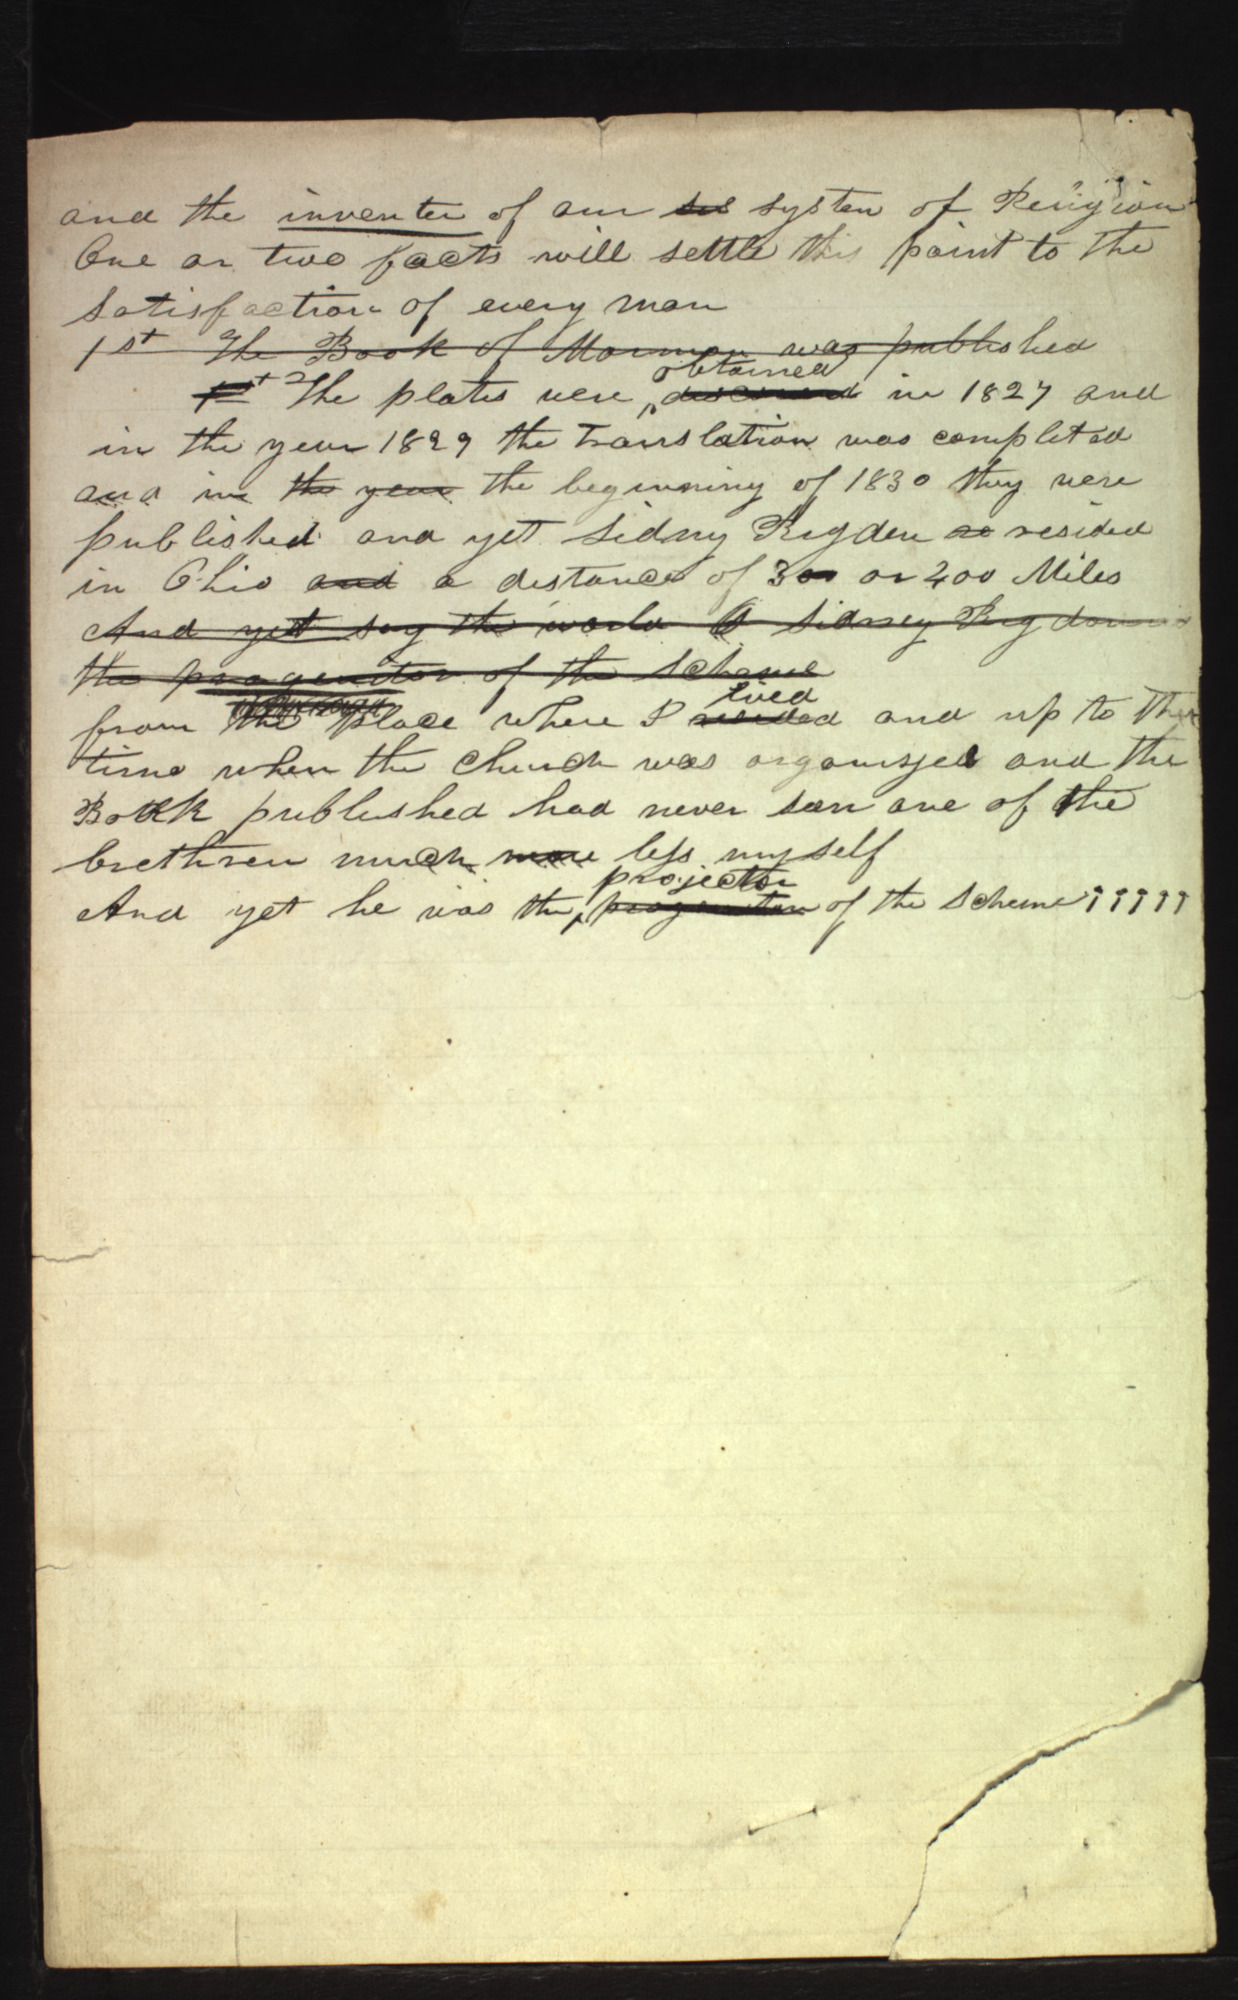 and the inventer of our sis system of Religion
One or two facts will settle this point to the
satisfaction of every man
1st The Book of Mormon was published
obtained
1st The plates were discovered in 1827 and
in the year 1829 the translation was completed
and in the year the beginning of 1830 they were
published and yet Sidney Rigden re resided
in Ohio and a distance of 300 or 400 Miles
And yet say the world Sidney Rigdon is
the progenitor of the scheme
lived
from the place where I resided and up to the
time when the church was organized and the
Book published had never seen one of the
brethren much more less myself
projector
And yet he was the progenitor of the scheme !!!!!